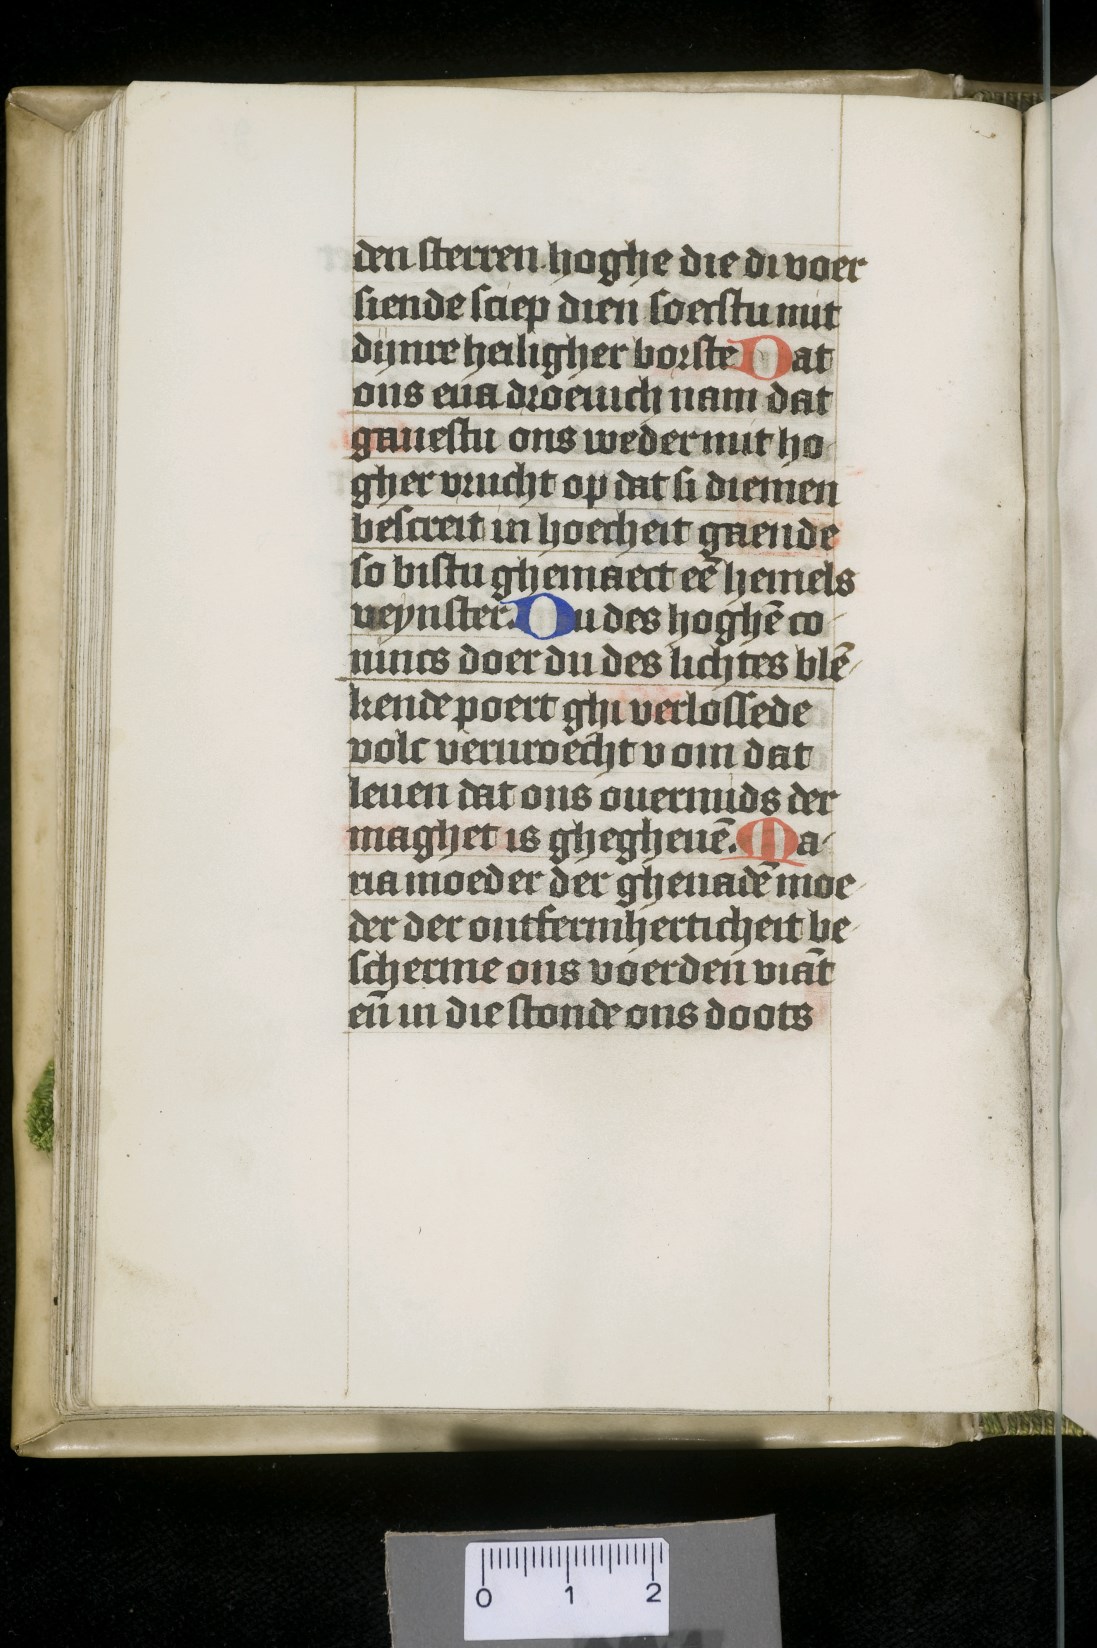 den sterren hoghe die di voer
siende sciep dien soecstu mit
dijnre heiligher borste Dat
ons eua droeuich nam dat
gauestu ons weder mit ho
gher vrucht op dat si diemen
bescreit in hoecheit gaende
so bistu ghemaect eē hemels
veynster. Du des hoghē co
nincs doer du des lichtes blē
kende poert ghi verlossede
volc veruroecht v om dat
leuen dat ons ouermids der
maghet is ghegheuē. Ma
ria moeder der ghenadē moe
der der ontfermherticheit be
scherme ons voerden viāt
en̄ in die stonde ons doots
0 1 2